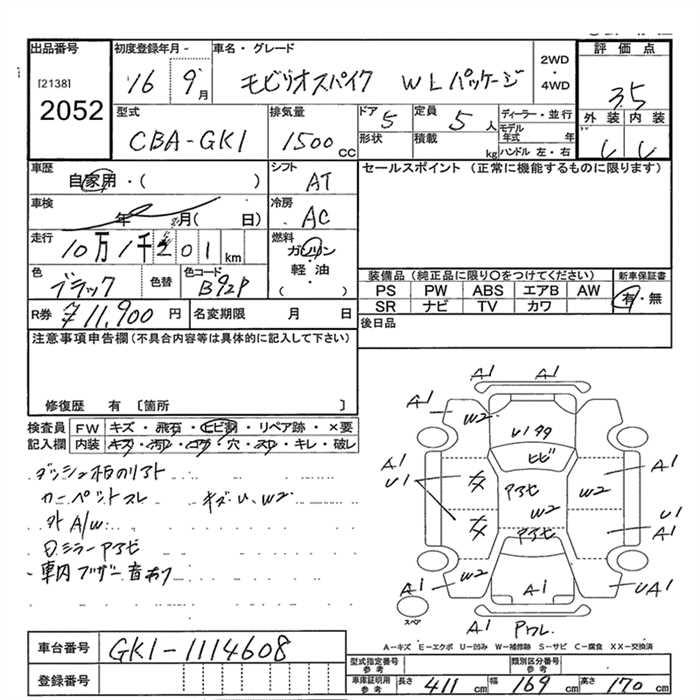 出品番号 初度登録年月 車名・グレード 2WD・4WD 評価点
[2138]
2052
16 9月 モビリオスパイク WLパッケージ 3.5
型式 排気量 ドア 定員 ディーラー・並行 外装 内装
CBA-GK1 1500cc 5 5人 モデル年式 年
形状 積載 kg ハンドル 左・右
車歴 シフト セールスポイント(正常に機能するものに限ります)
自家用・( ) AT
車検 冷房
年 月( 日) AC
走行 燃料
10万1千201km ガソリン
軽油
( )
色 色替 色コード
ブラック B92P
装備品(純正品に限り○をつけてください) 新車保証書
PS PW ABS エアB AW 有・無
SR ナビ TV カワ
R券 ¥11,900円 名変期限 月 日 後日品
注意事項申告欄(不具合内容等は具体的に記入して下さい)
修復歴 有 〔箇所 〕
検査員記入欄 FW キズ・飛石・ヒビ割・リペア跡・×要
内装 キズ・汚れ・コゲ・穴・スレ・キレ・破レ
カーペットスレ キズU、W2
外A/W
・車内ブザー音あり
A1 A1
A1 W2
ヒビ
A1 A1
U1 W2
W2 U1
A1
A1 W2 A1 UA1
スペア
A1 Pワレ
A-キズ E-エクボ U-凹み W-補修跡 S-サビ C-腐食 XX-交換済
車台番号 GK1-1114608
登録番号
型式指定番号 参考 類別区分番号 参考
車庫証明用 参考 長さ 411cm 幅 169cm 高さ 170cm